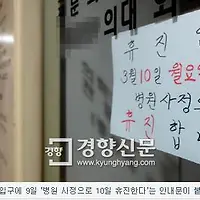 의대 외
휴진안
3월 10일 월요일
병원사정으로
휴진 합
경향 경향신문
www.kyunghyang.com
입구에 9일 '병원 사정으로 10일 휴진한다'는 인내문이 붙